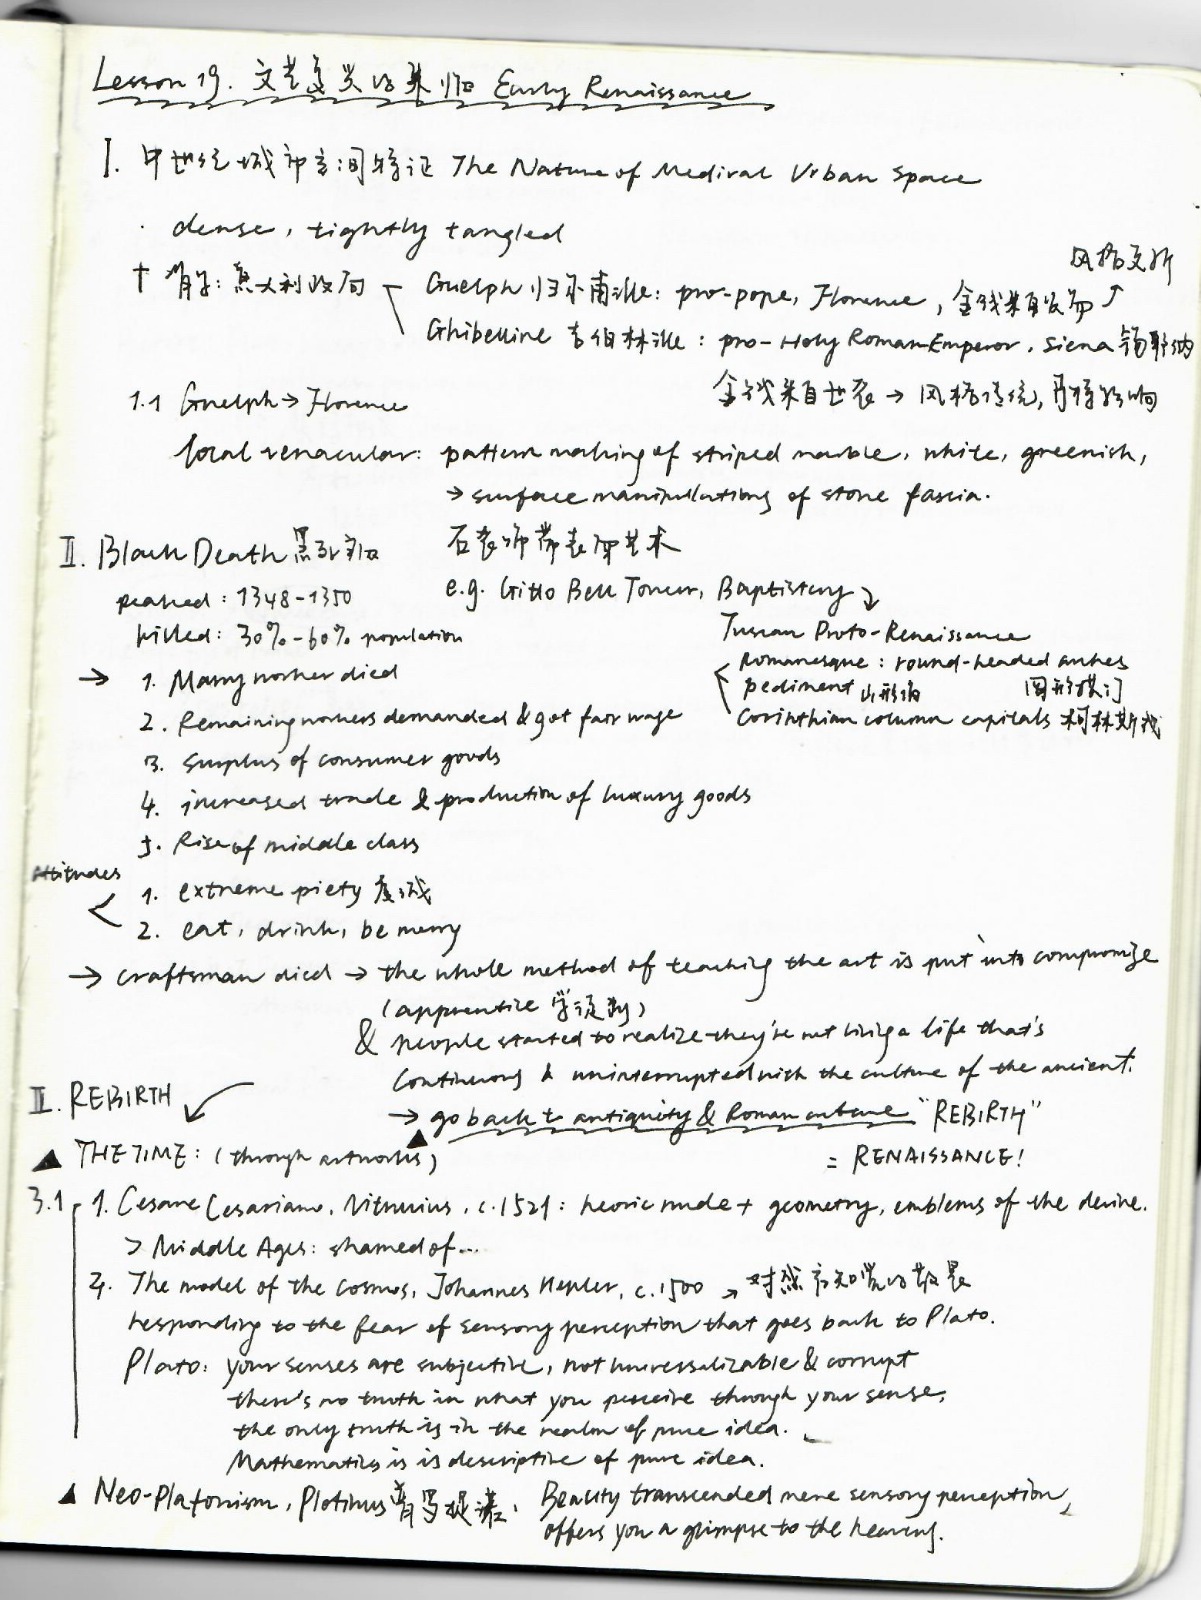 Lesson 19. 文艺复兴的来临 Early Renaissance
I. 中世纪城市空间特征 The Nature of Medival Urban Space
· dense, tightly tangled
风格更新
† 背景: 意大利政局 Guelph 归尔甫派: pro-pope, Florence, 金钱来自贸易 ↑
Ghibelline 吉伯林派: pro-Holy Roman Emperor, Siena 锡耶纳
1.1 Guelph → Florence
金钱来自世袭 → 风格传统,
local venacular: pattern making of striped marble, white, greenish,
→ surface manipulations of stone fascia.
II. Black Death 黑死病
石表饰带表面艺术
peaked: 1348-1350
e.g. Gitto Bell Tower, Baptistery ↘
killed: 30%-60% population
Tuscan Proto-Renaissance
→ 1. Many worker died
Romanesque: round-headed arches
pediment 山形墙 圆形拱门
2. Remaining workers demanded & got fair wage
Corinthian column capitals 柯林斯式
3. Surplus of consumer goods
4. increased trade & production of luxury goods
5. Rise of middle class
Attitudes
1. extreme piety 虔诚
2. eat, drink, be merry
→ craftsman died → the whole method of teaching the art is put into compromize
(apprentice 学徒制)
& people started to realize they're not living a life that's
continuous & uninterrupted with the culture of the ancient.
II. REBIRTH
→ go back to antiquity & Roman culture "REBIRTH"
▲ THE TIME: (through artworks)
= RENAISSANCE!
3.1 1. Cesare Cesariano, Vitruvius, c.1521: heoric nude + geometry, emblems of the devine.
> Middle Ages: shamed of...
2. The model of the Cosmos, Johannes Kepler, c.1500 → 对感官知觉的敬畏
responding to the fear of sensory perception that goes back to Plato.
Plato: your senses are subjective, not universalizable & corrupt
there's no truth in what you perceive through your sense,
the only truth is in the realm of pure idea.
Mathematics is is descriptive of pure idea.
▲ Neo-Platonism, Plotinus 普罗提诺. Beauty transcended mere sensory perception,
offers you a glimpse to the heavens.